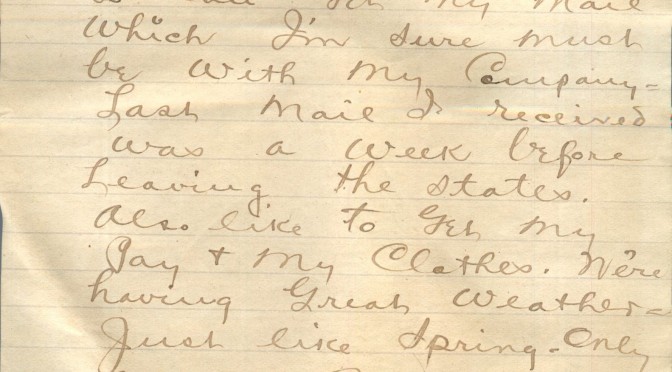 Get my Mail
Which I'm sure must
be With My Company-
Last Mail I received
was a week before
Leaving the states.
Also like to Get My
Pay + My Clothes. We're
having Great Weather-
Just like Spring-Only